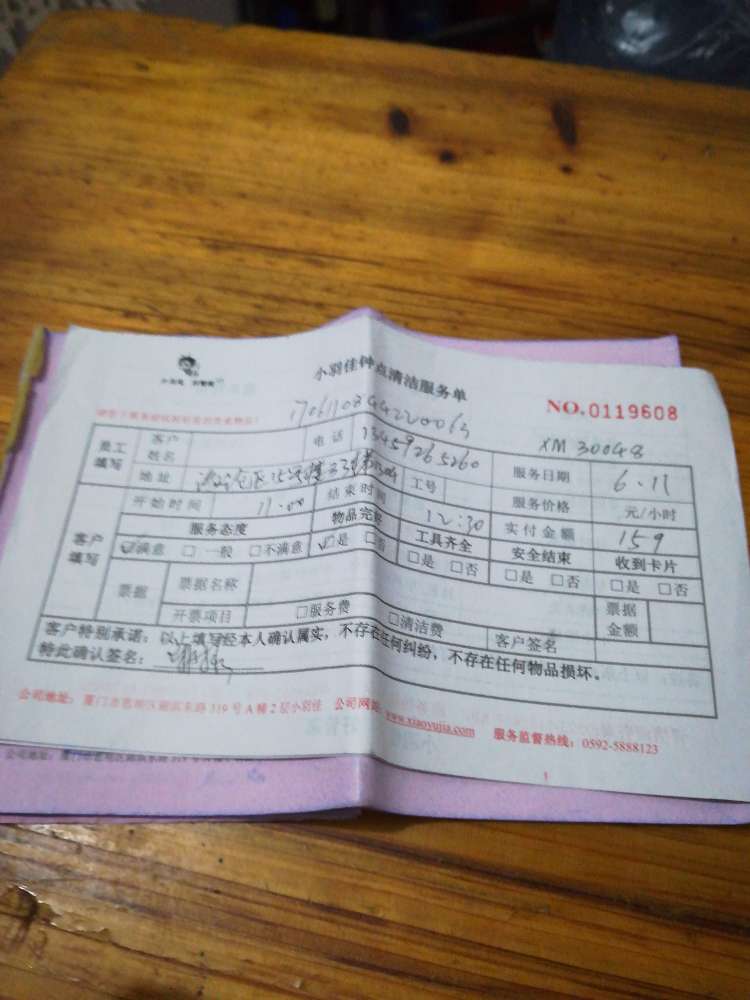 小羽佳钟点清洁服务单
NO.0119608
XM 30048
员工填写 客户姓名 电话 13459265260 服务日期 6.11
地址 工号 服务价格 元/小时
客户填写 开始时间 11:00 结束时间 12:30 实付金额 159
服务态度 物品完 工具齐全 安全结束 收到卡片
☑满意 □一般 □不满意 ☑是 □否 □是 □否 □是 □否 □是 □否
票据 票据名称 票据金额
开票项目 □服务费 □清洁费 客户签名
客户特别承诺:以上填写经本人确认属实,不存在任何纠纷,不存在任何物品损坏。
特此确认签名:
公司地址:厦门市思明区湖滨东路319号A幢2层小羽佳 公司网 www.xiaoyujia.com 服务监督热线:0592-5888123
1